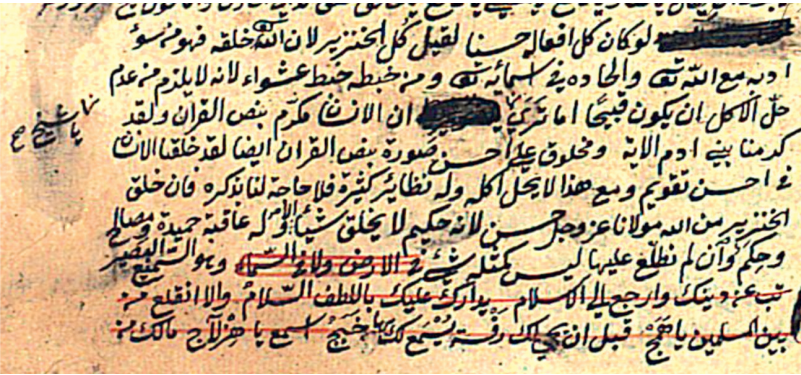 لو كان كل افعاله حسنا لقيل كُل الخنزير لان الله خلقه فهو من سوء
ادبه مع الله تعه والحاده في اسمائه تعه ومن خبطه خبط عشواء لانه لا يلزم من عدم
حلّ الاكل ان يكون قبيحًا اما ترى ان الانسان مكرّم بنص القران ولقد
يا شيخ
كرمنا بني ادم الاية ومخلوق على احسن صورة بنص القران ايضا لقد خلقنا الانسان
في احسن تقويم ومع هذا لا يحل اكله وله نظاير كثيرة فلا حاجة لنا بذكره فان خلق
الخنزير من الله مولانا عز وجل حسن لانه حكيم لا يخلق شيئا الا وله عاقبة حميدة ومصالح
وحِكَم وان لم نطّلع عليها ليس كمثله شئ في الارض ولا في السّماء وهو السّميع البصير
تب عن دينك وارجع الى الاسلام يدارك عليك باللطف السّلام والا انقلع من
بين المسلمين يا همج قبل ان اسمع يا مالك من